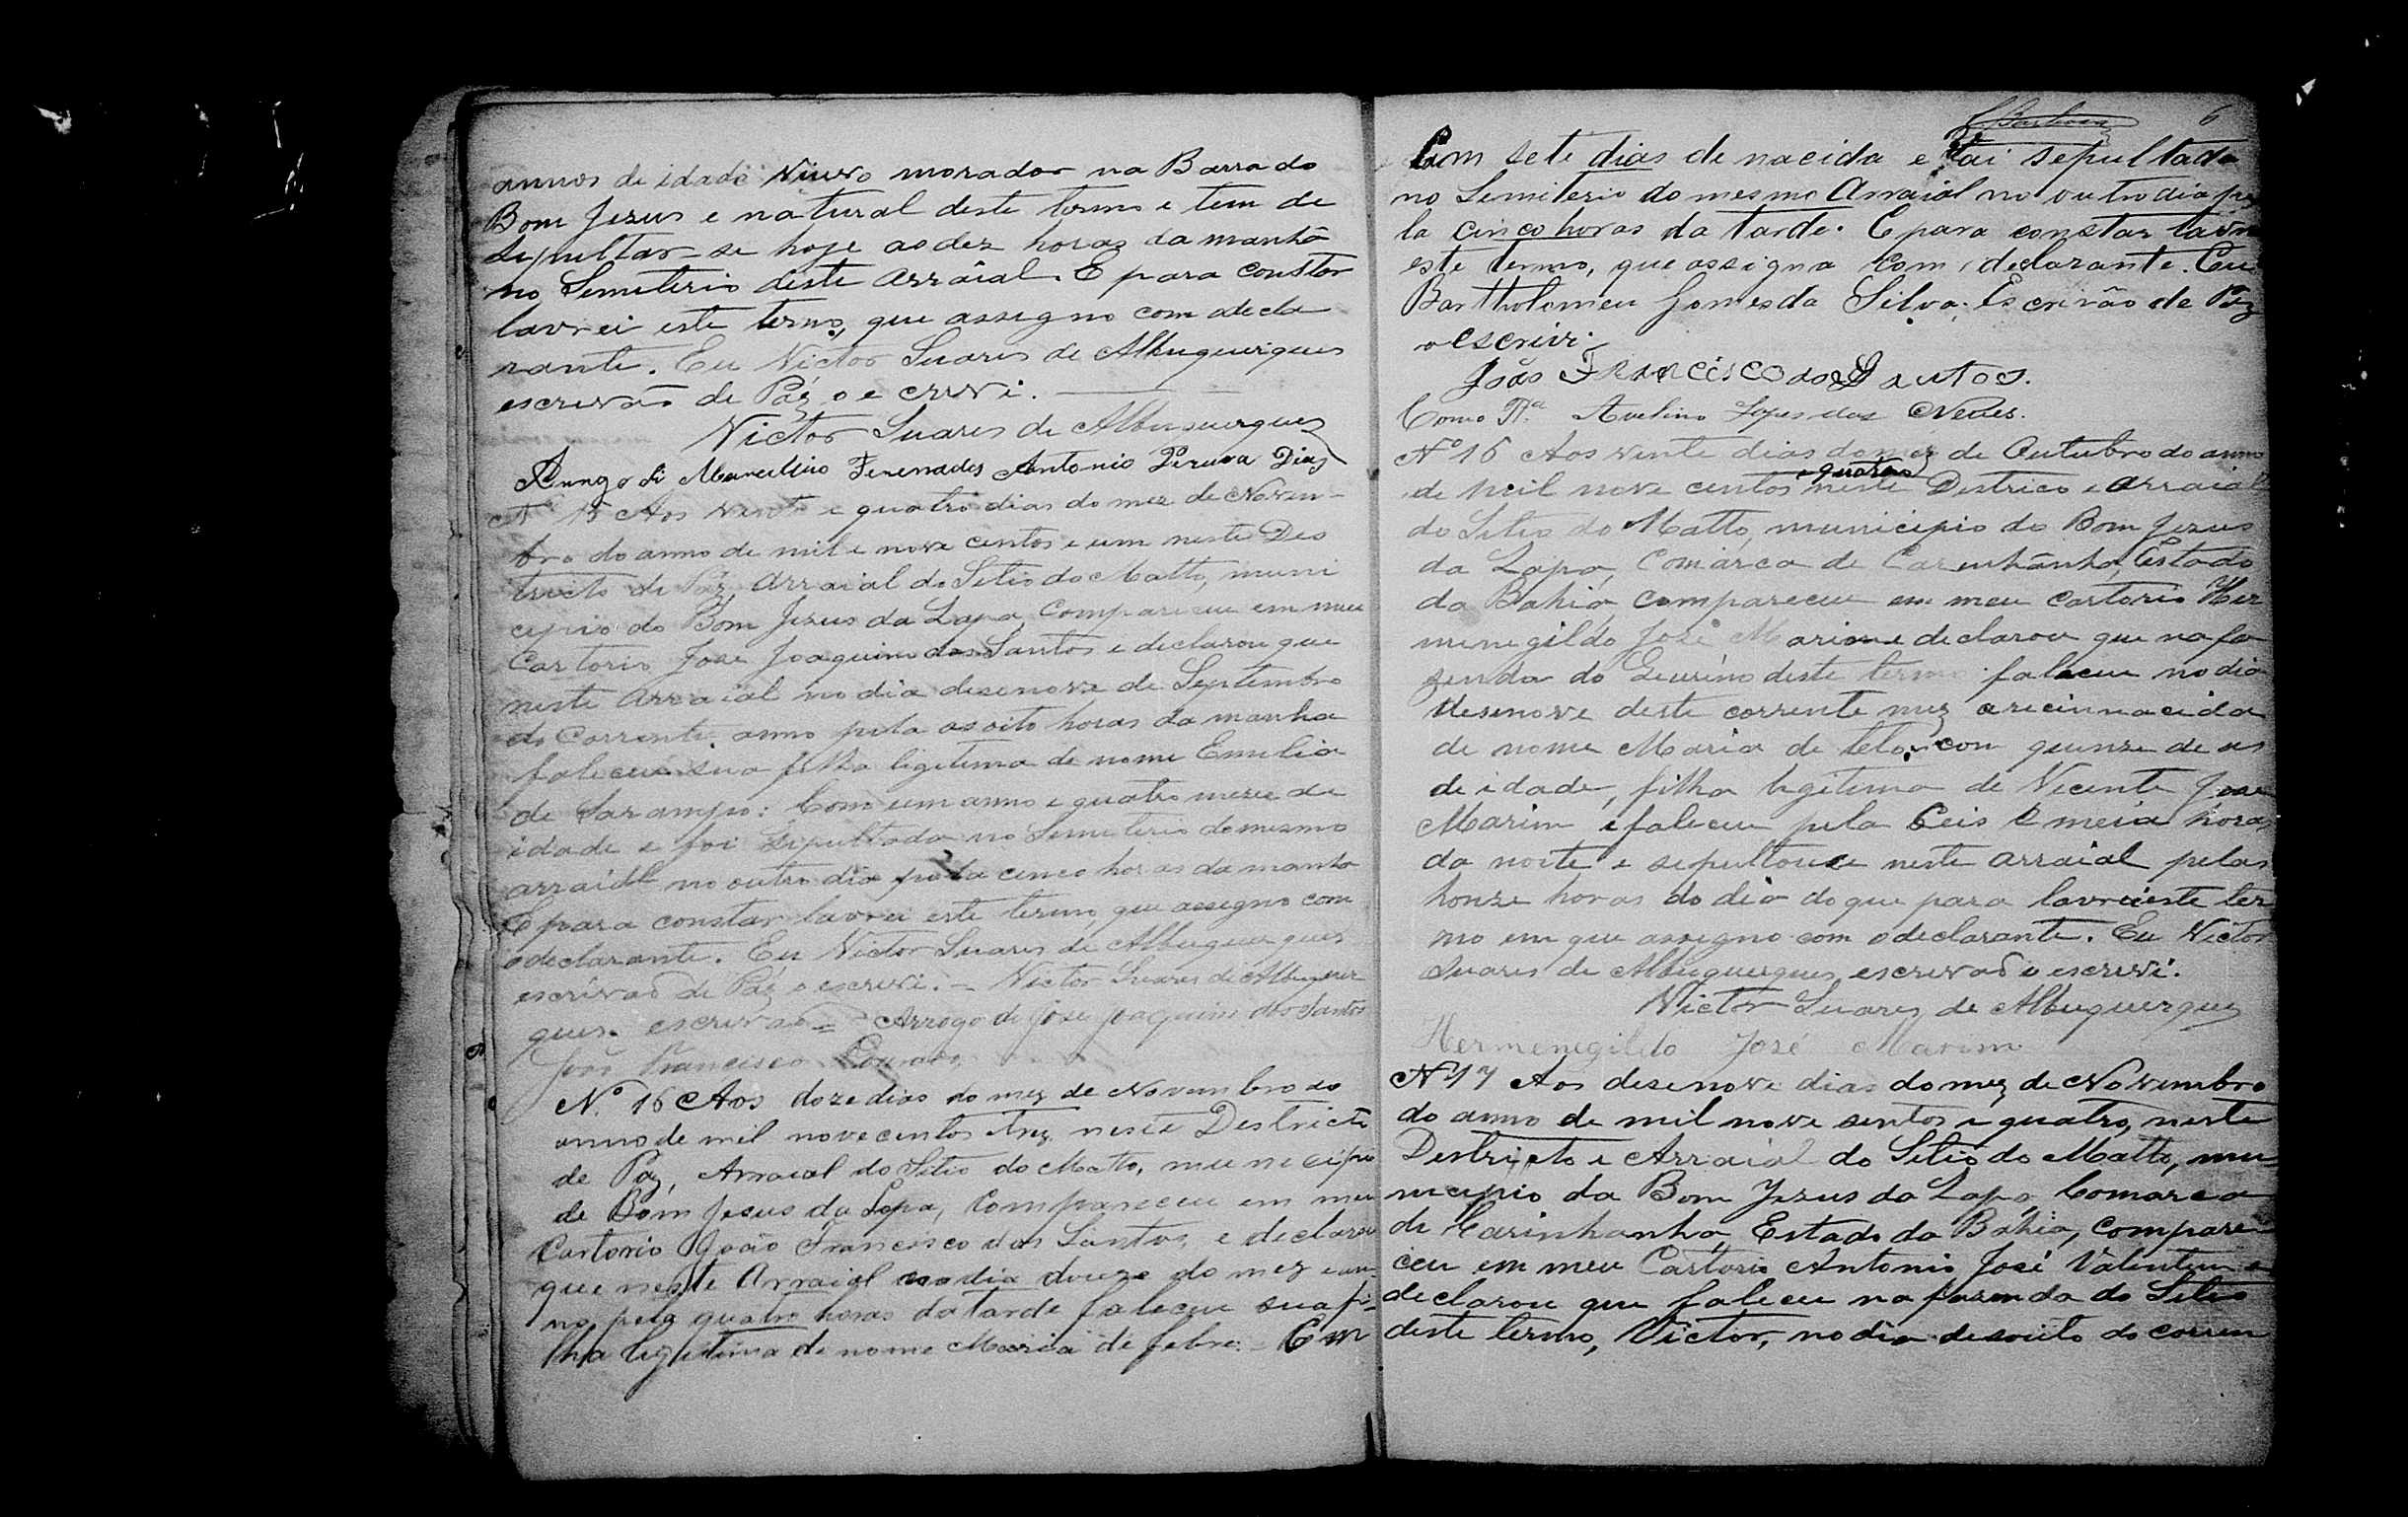 annos de idade Viuvo morador na Barra do
Bom Jezus e natural deste termo e tem de
sepultar-se hoje as dez horas da manhã
no Semiterio deste arraial. E para constar
lavrei este termo, que assigno com a decla
rante. Eu Victor Suares de Albuquerques
escrivão de Páz o e crivi.
Victor Suares de Albuquerques
Marcelino Ferenades Antonio Pereira Dias
Nº 15 Aos vinte e quatro dias do mez de Novem-
bro do anno de mil e nove centos e um neste Des
tricto de Paz, Arraial do Sitio do Matto, muni
cipio do Bom Jezus da Lapa, Compareceu em meu
Cartorio Jose Joaquim dos Santos e declarou que
neste Arraial no dia desenove de Septembro
do Corrente anno pela as oito horas da manha
faleceu sua filha ligitima de nome Emilia
de Sarampo: Com um anno e quatro meze de
idade e foi sepultada no Semiterio do mesmo
arraial no outro dia pela cinco horas da manha
E para constar lavrei este termo, que assigno com
o declarante. Eu Victor Suares de Albuquerques
escrivão de Páz o escrivi. - Victor Suares de Albuquer
ques. escrivão = Arrogo de Jose Joaquim dos Santos
João Francisco
N.º 16 Aos doze dias do mez de Novembro do
anno de mil novecentos e trez neste Destricto
de Paz, Arraial do Sitio do Matto, municipio
de Bom Jesus da Lapa, Compareceu em meu
Cartorio João Francisco dos Santos, e declarou
que neste Arraial no dia douze do mez e an-
no pela quatro horas da tarde faleceu sua fi-
lha legitima de nome Maria de febre. - Com
6
Com sete dias de nacida e Foi sepultada
no Semiterio do mesmo Arraial no outro dia pe
la cinco horas da tarde. E para constar lavrei
este termo, que assigna com, declarante. Eu
Bartholomeu Gomes da Silva. Escrivão de Páz
o escrivi.
João Francisco dos Santos.
Como Tª. Avelino Lopes das Neves.
Nº 16 Aos vinte dias do mez de Outubro do anno
e quatro
de mil nove centos neste Destrico e Arraial
do Sitio do Matto, municipio do Bom Jezus
da Lapa, Comarca de Carinhânha, Estado
da Bahia, compareceu em meu cartorio Her
menegildo José Marim e declarou que na fa
zenda do deste termo faleceu no dia
desenove deste corrente mez a recinnacida
de nome Maria de com quinze de as
de idade, filha legitima de Vicente Jose
Marim e faleceu pela Ceis e meia horas
da noite e sepultouce neste arraial pelas
honze horas do dia do que para lavrei este ter
mo em que assigno com o declarante. Eu Victor
Suares de Albuquerques, escrivão o escrivi.
Victor Suares de Albuquerques
Hermenegildo José Marim
Nº 17 Aos desenove dias do mez de Novembro
do anno de mil nove sentos e quatro, neste
Destricto e Arraial do Sitio do Matto, mu-
nicipio da Bom Jezus da Lapa Comarca
de Carinhanha, Estado da Bahia, compare-
ceu em meu Cartorio Antonio José Valentim e
declarou que faleceu na fazenda do Sitio
deste termo, Victor, no dia desoito do corren